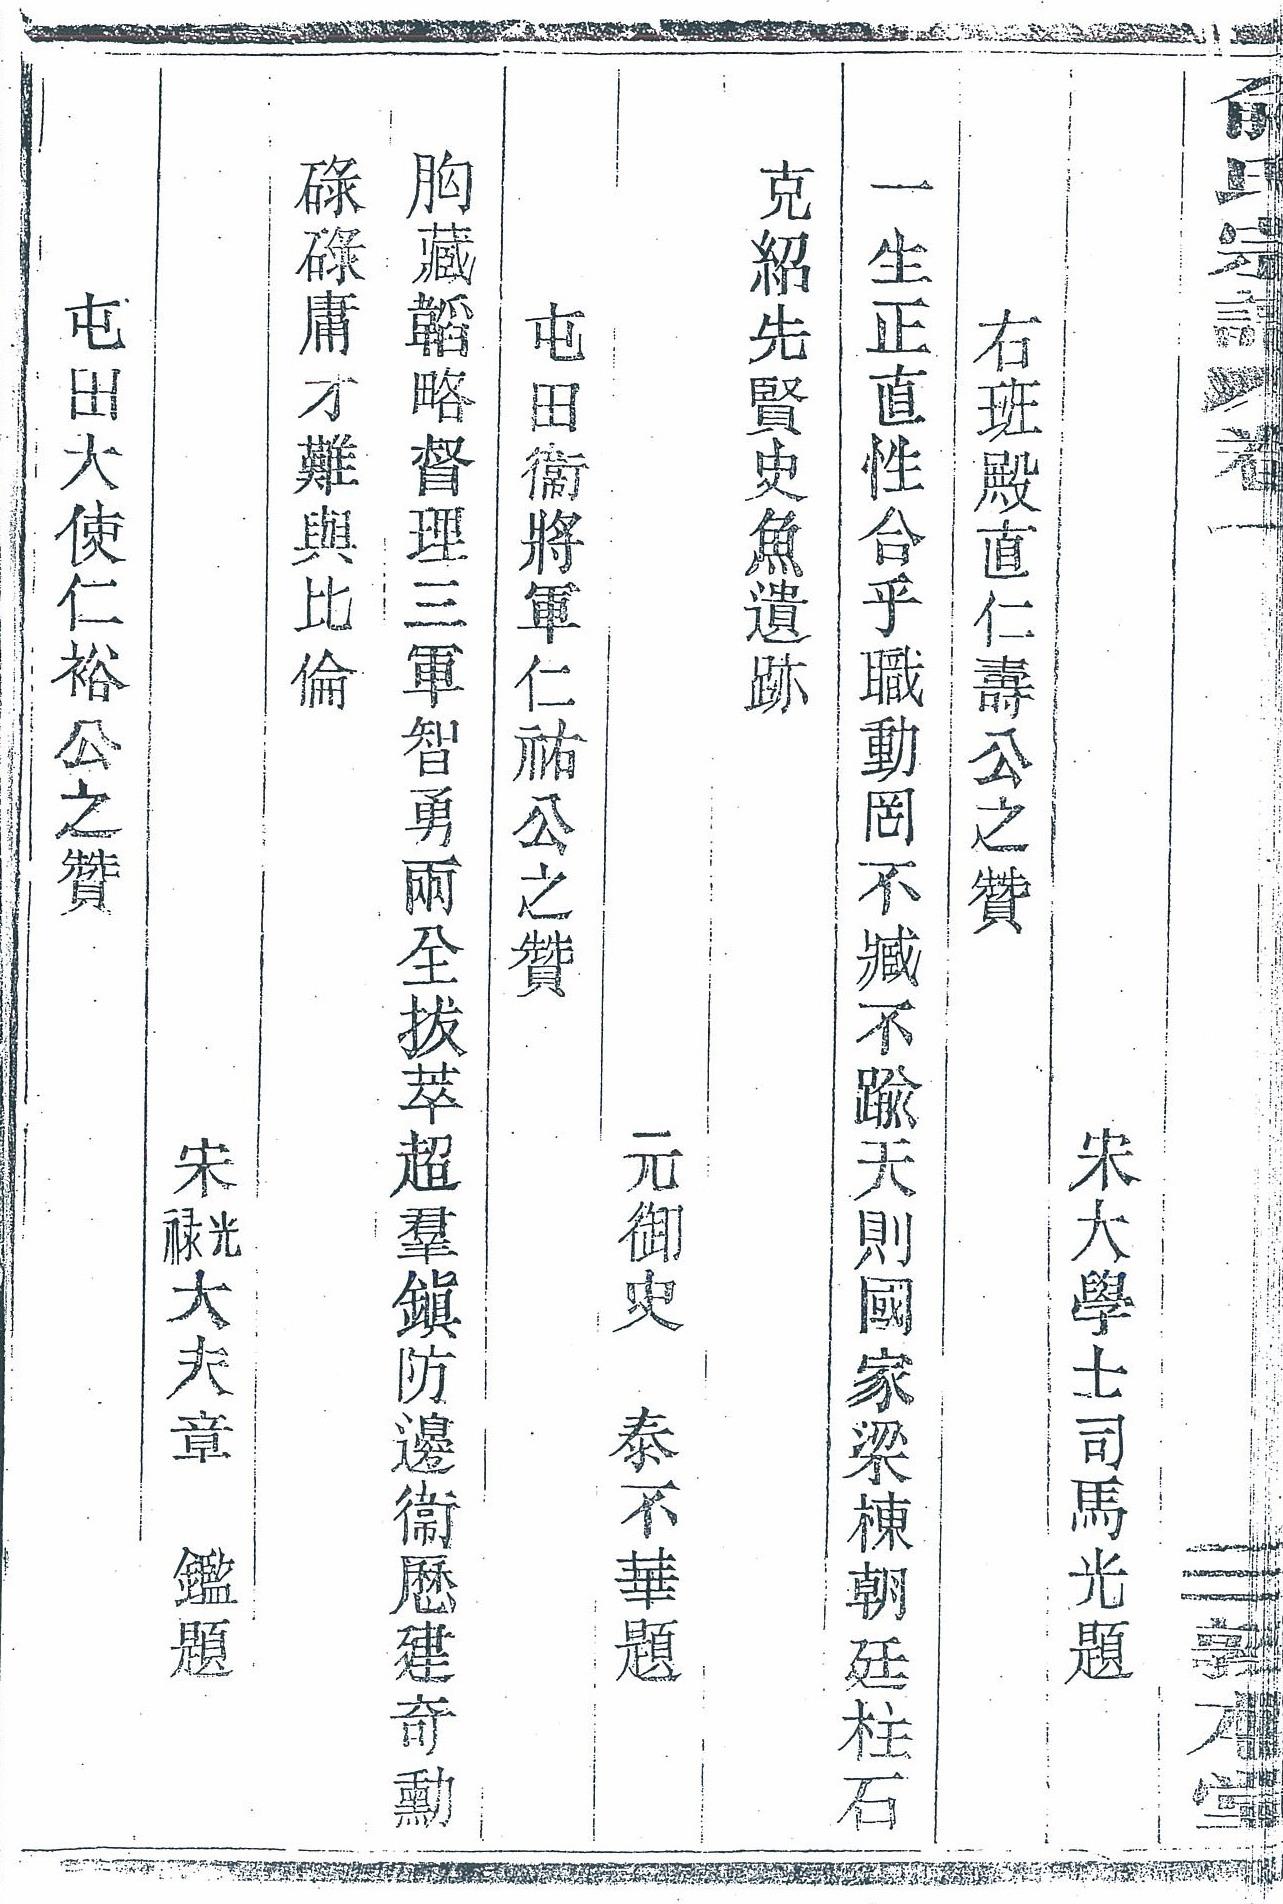 俞氏宗譜 卷一 三 敦本堂
宋大學士司馬光題
右班殿直仁壽公之贊
一生正直性合乎職動罔不臧不踰天則國家梁棟朝廷柱石
克紹先賢史魚遺跡
元御史 泰不華題
屯田衞將軍仁祐公之贊
胸藏韜略督理三軍智勇兩全拔萃超羣鎭防邊衞歷建奇勳
碌碌庸才難與比倫
宋光祿大夫章 鑑題
屯田大使仁裕公之贊